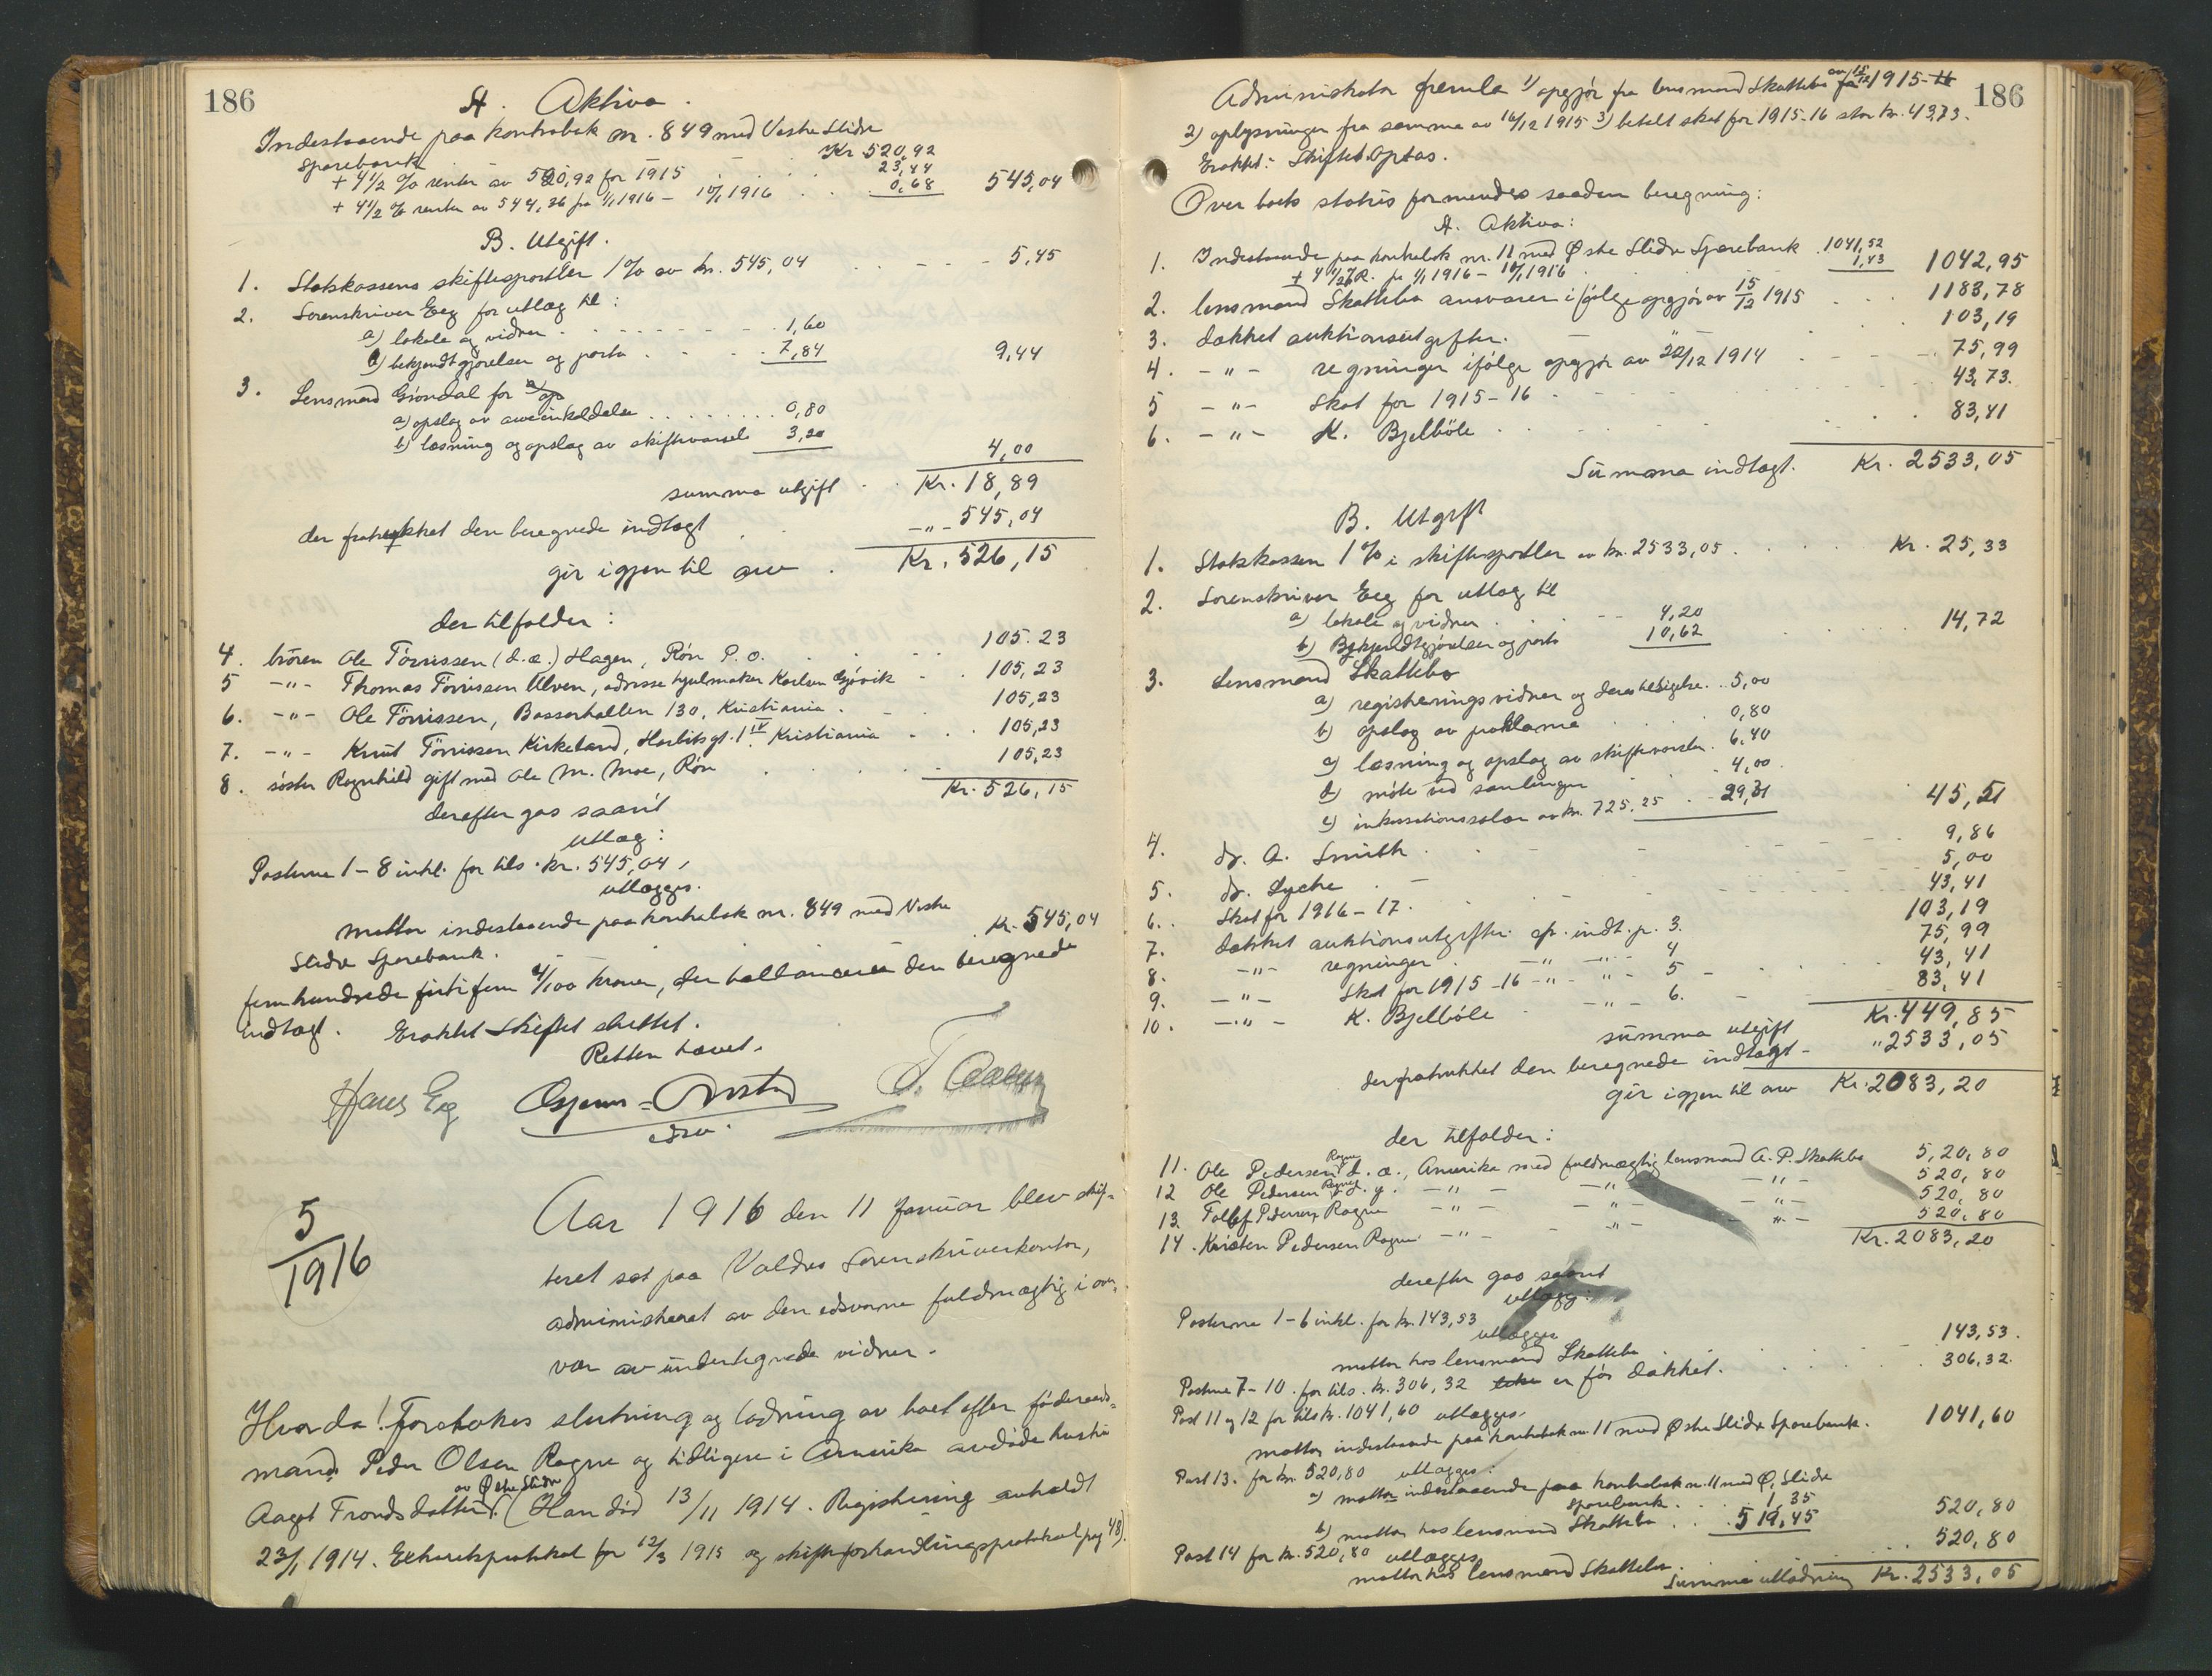 186
A. Aktiva.
Indestaaende paa kontrabok nr. 849 med Vestre Slidre
Sparebank Kr 520,92
+ 4 1/2 % renter av 520,92 for 1915 23,44
+ 4 1/2 % renter av 544,36 fra 1/1 1916 – 11/1 1916 0,68 545,04
B. Utgift.
1. Statskassens skiftesportler 1% av kr. 545,04 5,45
2. Sorenskriver Eeg for utlæg til:
a) lokale og vidner 1,60
b) bekjendtgjørelser og porto 7,84 9,44
3. Lensmand Grøndal for
a) opslag av arveindkaldelse 0,80
b) læsning og opslag av skiftevarsel 3,20
4,00
summa utgift Kr. 18,89
der fratrukket den beregnede indtægt -"- 545,04
gir igjen til arv Kr. 526,15
der tilfalder:
4. broren Ole Törrissen (d.æ.) Hagen, Røn P.O. 105.23
5 -"- Thomas Torrissen Ulven, adresse hjulmaker Karlsen Gjøvik 105,23
6. -"- Ole Törrissen, Bassarhallen 130, Kristiania 105,23
7. -"- Knut Törrissen Kirkeland, Herbitsgt. 1 IV Kristiania 105,23
8. søster Ragnhild gift med Ole M. Moe, Røn 105,23
Kr. 526,15
derefter gas saant
utlæg:
Posterne 1–8 inkl. for tils. kr. 545,04,
utlægges.
mottar indestaaende paa kontrabok nr. 849 med Vestre
Slidre Sparebank. Kr. 545,04
fem hundrede firti fem 4/100 kroner, der ballancerer den beregnede
indtægt. Erakted Skiftet sluttet.
Retten hævet.
Hans Eeg
edsv.
5/1916
Aar 1916 den 11 Januar blev skif-
teret sat paa Valdres Sorenskriverkontor,
administreret av den edsvorne fuldmægtig i over-
vær av undertegnede vidner.
Hvorda! Foretokes slutning og lodning av boet efter föderaads-
mand Peder Olsen Rogne og tidligere i Amerika avdøde hustru
av Østre Slidre
Aagot Tronds datter. (Han död 13/11 1914. Registrering avholdt
23/1 1914. Ekstraretsprotokol for 12/3 1915 og skifteforhandlingsprotokol pag 48).
186
Administrator fremla 1) opgjör fra lensmand Skattebo av 15/12 1915
2) oplysninger fra samme av 16/12 1915 3) betalt skat for 1915-16 stor kr. 43,73.
Eraktet: Skiftet optas.
Over boets status formendes saadan beregning:
A. Aktiva:
1. Indestaaende paa kontrabok nr. 11 med Østre Slidre Sparebank 1041,52
+ 4 1/2 % R. fra 1/1 1916 – 11/1 1916 1,43 1042,95
2. lensmand Skattebo ansvarer ifölge opgjör av 15/12 1915 1183,78
3. dækket auktionsutgifter. 103,19
4. -"- regninger ifölge opgjör av 22/12 1914 75,99
5 -"- Skat for 1915–16 43,73.
6. -"- K. Bjelböle 83,41
Summa indtægt. Kr. 2533,05
B. Utgift
1. Statskassen 1% i skiftesportler av kr. 2533,05 Kr. 25,33
2. Sorenskriver Eeg for utlæg til
a) lokale og vidner 4,20
b) Bekjendtgjørelser og porto 10,62 14,72
3. Lensmand Skattebo
a) registreringsvidner og deres tilsigelse 5,00
b) opslag av proklama 0,80
c) læsning og opslag av skiftevarsler 6,40
d) möte ved samlingen 4,00
e) inkassationssalær av kr. 725.25 29,31 45,51
4. dr. A. Smith 9,86
5. dr. Lyche 5,00
6. Skat for 1916–17. 43,41
7. dækket auktionsutgifter cfr. indt. p. 3. 103,19
8. -"- regninger -"- -"- 4 75,99
9. -"- Skat for 1915–16 -"- -"- 5 43,41
10. -"- K. Bjelböle -"- 6. 83,41
summa utgift Kr. 449,85
der fratrukket den beregnede indtægt " 2533,05
gir igjen til arv Kr. 2083,20
der tilfalder:
11. Ole Pedersen Rogne d.æ., Amerika med fuldmægtig lensmand A. P. Skattebo 5,20,80
12 Ole Pedersen Rogne d.y. -"- -"- -"- 520,80
13 Tollef Pedersen Rogne -"- -"- -"- 520,80
14. Karsten Pedersen Rogne -"- -"- -"- 520,80
Kr. 2083,20
derefter gas saant
utlægg:
Posterne 1–6 inkl. for kr. 143,53
utlægges
mottar hos lensmand Skattebo 143,53.
Posterne 7–10. for tils. kr. 306,32 er før dækket. 306,32.
Post 11 og 12 for tils kr. 1041,60 utlægges,
mottar indestaaende paa kontrabok nr. 11 med Østre Slidre Sparebank. 1041,60
Post 13. for kr. 520,80 utlægges:
a) mottar indestaaende paa kontrabok nr. 11 med Ø. Slidre
Sparebank. 1,35
b) mottar hos lensmand Skattebo 519,45 520,80
Post 14 for kr. 520,80 utlægges
mottar hos lensmand Skattebo. 520,80
Summa utlodning Kr. 2533,05